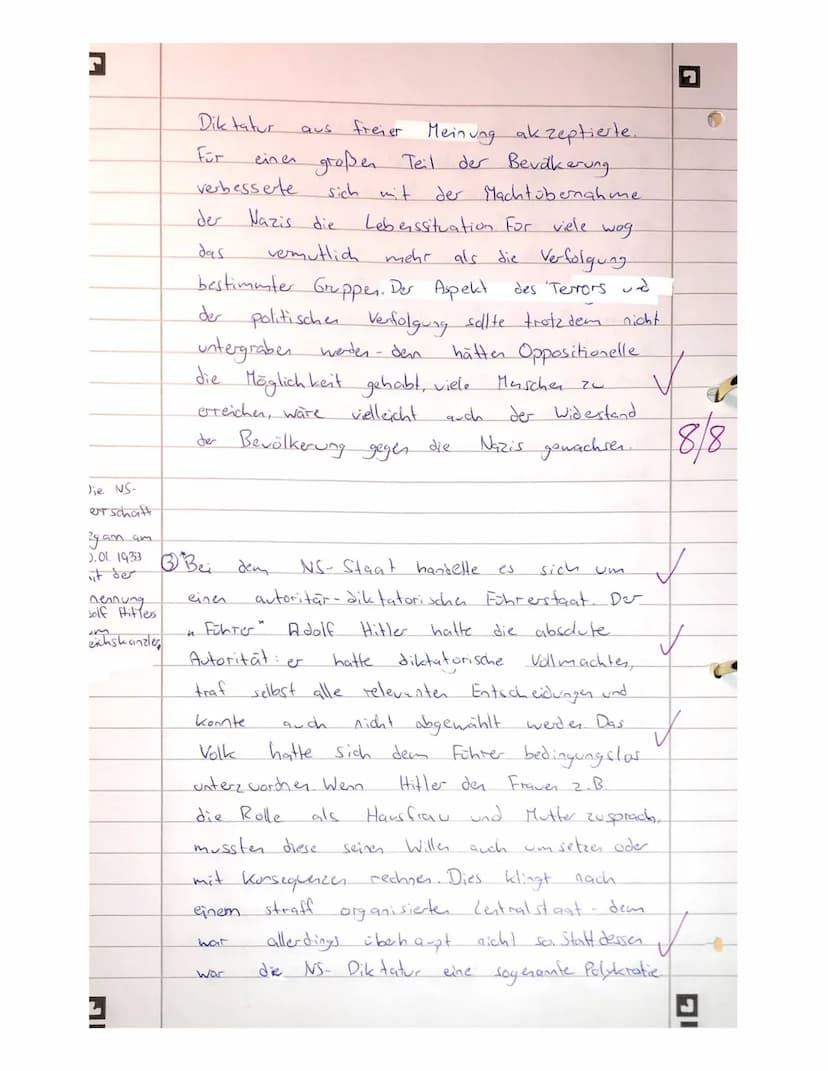 Diktatur aus freier Meinung akzeptierte.
Für einen großen Teil der Bevölkerung
verbesserte sich mit der Machtübernahme
der Nazis die Lebenssituation. Für viele wog
das vermutlich mehr als die Verfolgung
bestimmter Gruppen. Der Aspekt des Terrors und
der politischen Verfolgung sollte trotzdem nicht
untergraben werden - denn hätten Oppositionelle
die Möglichkeit gehabt, viele Menschen zu
erreichen, wäre vielleicht auch der Widestand
der Bevölkerung gegen die Nazis gewachsen.
8/8
Die NS-
errschaft
egan am
0.01.1933
it der
nennung
dolf Hitlers
um
eichskanzler
③*Bei dem NS-Staat handelte es sich um
einen autoritär-diktatorischen Führerstaat. Der
„Führer" Adolf Hitler hatte die absolute
Autorität: er hatte diktatorische Vollmachten,
traf selbst alle relevanten Entscheidungen und
konnte auch nicht abgewählt werden. Das
Volk hatte sich dem Führer bedingungslos
unterzuordnen. Wenn Hitler den Frauen z.B.
die Rolle als Hausfrau und Mutter zusprach,
mussten diese seinen Willen auch umsetzen oder
mit Konsequenzen rechnen. Dies klingt nach
einem straff organisierten Zentralstaat - dem
war allerdings überhaupt nicht so. Stattdessen
war die NS-Diktatur eine sogenannte Polykratie